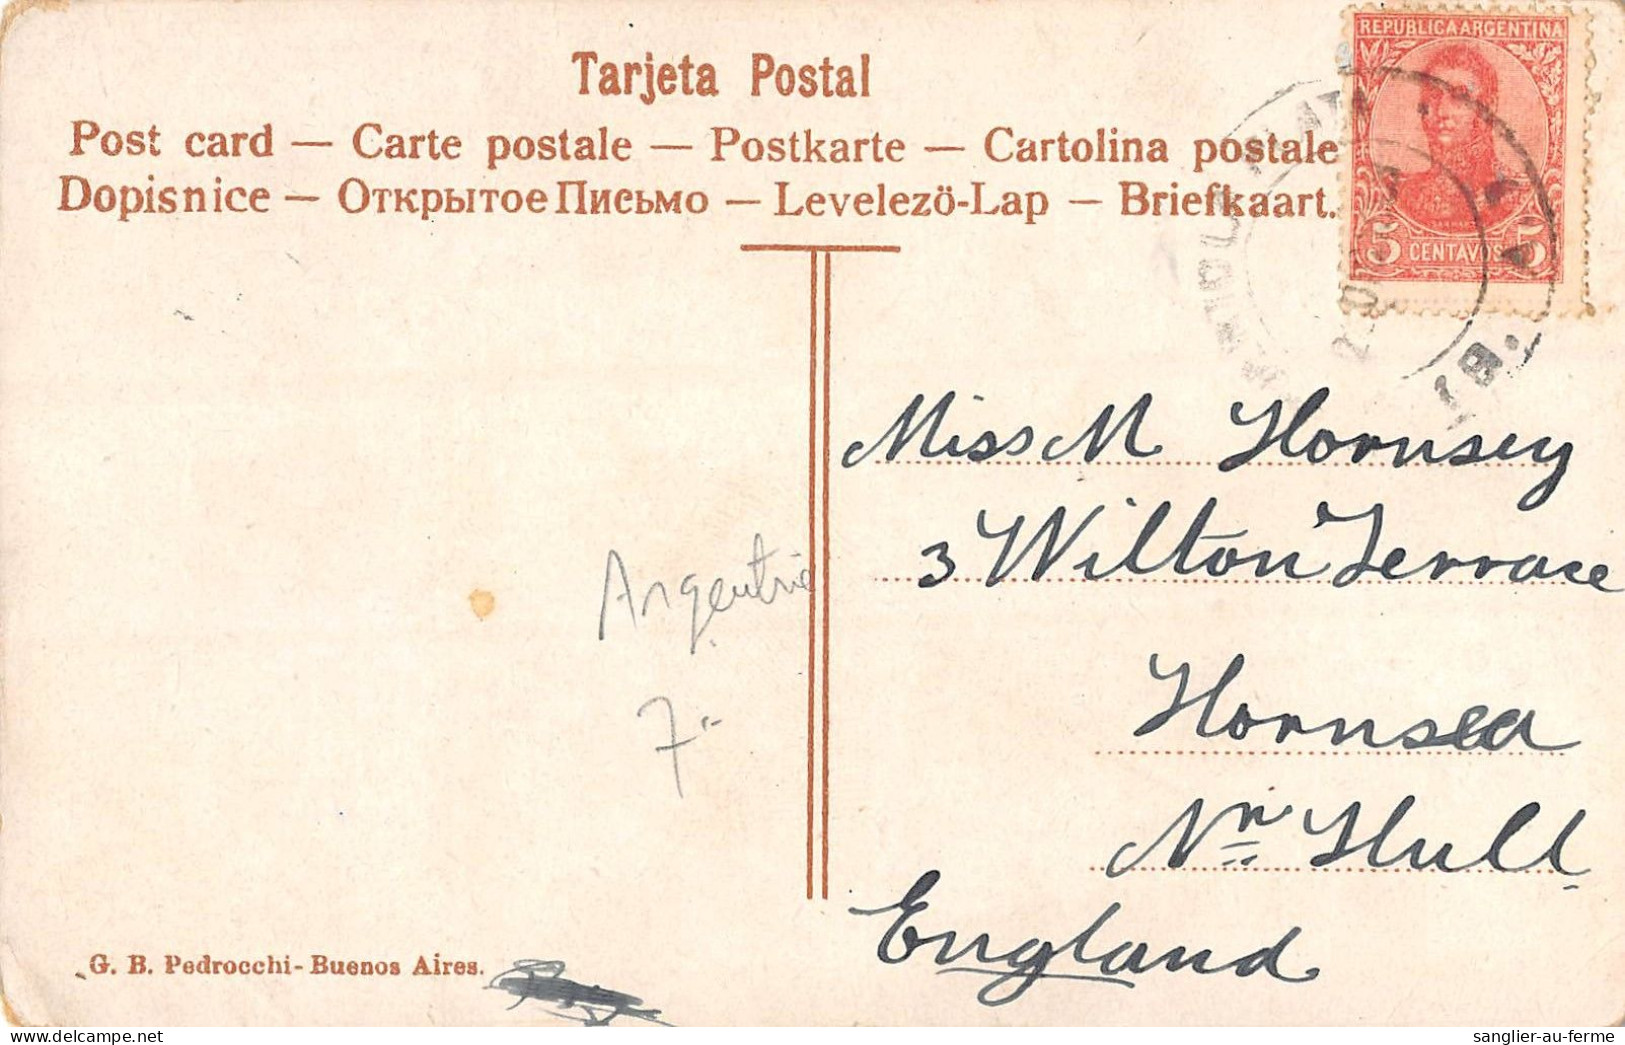 REPUBLICA ARGENTINA
5 CENTAVOS 5
Tarjeta Postal
Post card — Carte postale — Postkarte — Cartolina postale
Dopisnice — Открытое Письмо — Levelezö-Lap — Briefkaart.
Miss M Hornsey
3 Wilton Terrace
Hornsea
Nr Hull
England
Argentine
7
G. B. Pedrocchi - Buenos Aires.
sanglier-au-ferme